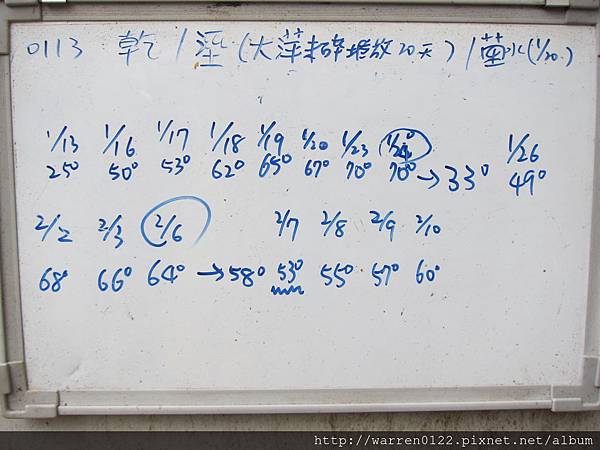 0113 乾/溼(大萍未碎堆放20天)/菌水(1/20.)
1/13 1/16 1/17 1/18 1/19 1/20 1/23 1/24 1/26
25° 50° 53° 62° 65° 67° 70° 70° →33° 49°
2/2 2/3 2/6 2/7 2/8 2/9 2/10
68° 66° 64° →58° 53° 55° 57° 60°
http://warren0122.pixnet.net/album